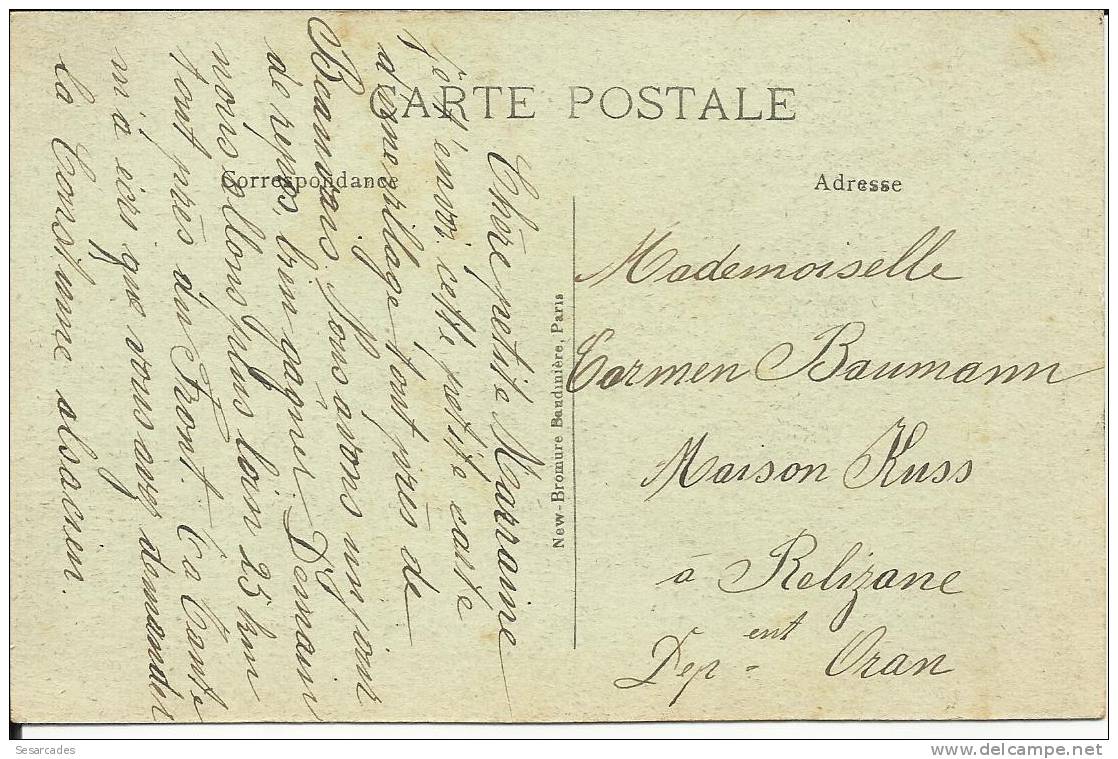 CARTE POSTALE
Correspondance
Adresse
Chère petite Marraine
Je t'envoi cette petite carte
d'une village tout près de
Beauvais. Nous avons un jour
de repos, bien gagner. Demain
nous allons plus loin 25 km
tout près du Front. Ta Tante
m'a écris que vous avez demander
la Costume alsacien.
New-Bromure Baudinière, Paris
Mademoiselle
Carmen Baumann
Maison Kuss
à Relizane
Dep ent Oran
Sesarcades
www.delcampe.net